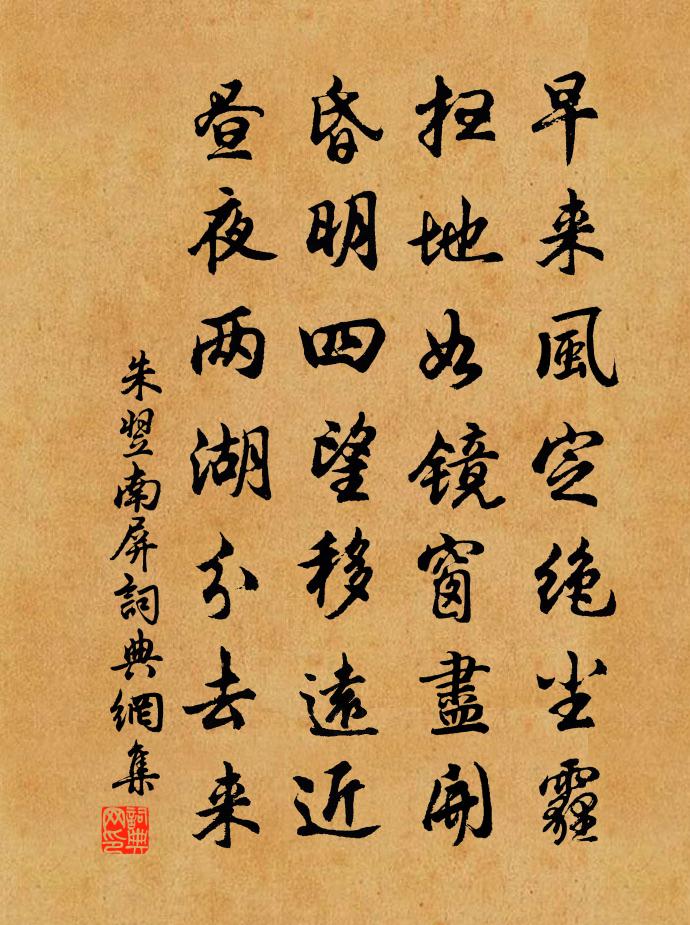 早来風定绝尘霾
扫地如镜窗盡開
昏明四望移遠近
昼夜两湖分去来
朱翌南屏詞典網集
詞典网印